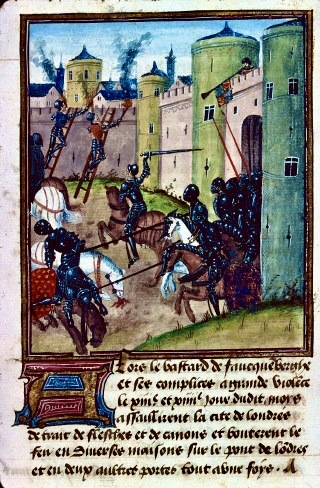 Alors le bastard de faucqueberghe
et ses complices a grande violẽce
le et jour dudit moys
assaillirent la cite de londres
de trait de flesches et de canons et bouterent le
feu en diverses maisons sur le pont de lõdres
et en deux aultres portes tout a une foys. A